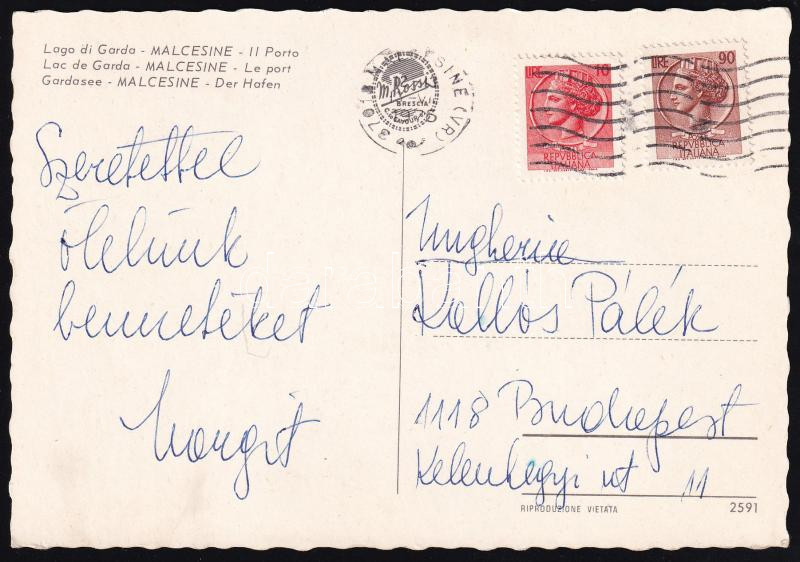 Lago di Garda - MALCESINE - Il Porto
Lac de Garda - MALCESINE - Le port
Gardasee - MALCESINE - Der Hafen
M. Rossi
BRESCIA
ESINE (VR)
LIRE 10
REPVBBLICA
ITALIANA
LIRE 90
REPVBBLICA
ITALIANA
Szeretettel
ölelünk
benneteket
Margit
Ungheria
Kallós Pálék
1118 Budapest
Kelenhegyi út 11
RIPRODUZIONE VIETATA
2591